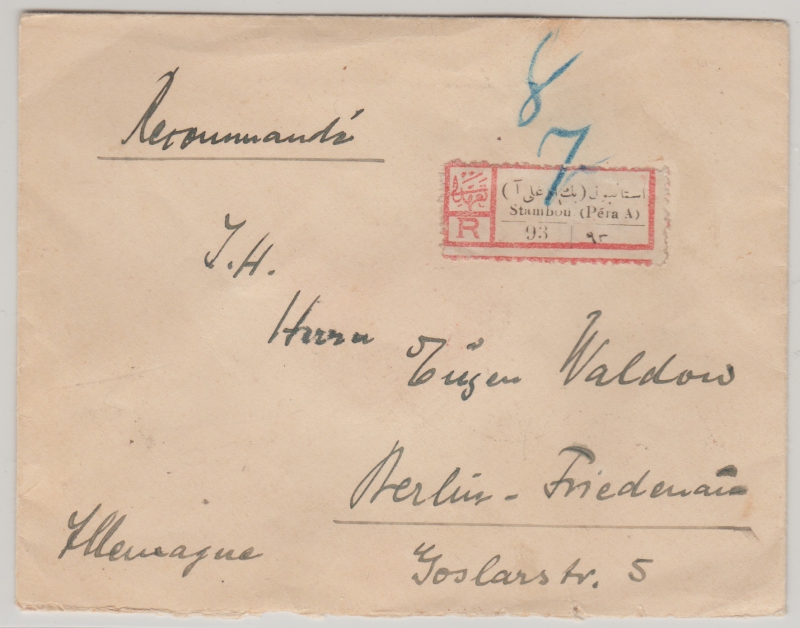 8
7
Recommandé
استانبول (بك اوغلی آ)
R
Stamboul (Péra A)
93 ٩٣
I. H.
Herrn
Eugen Waldow
Berlin-Friedenau
Goslarstr. 5
Allemagne